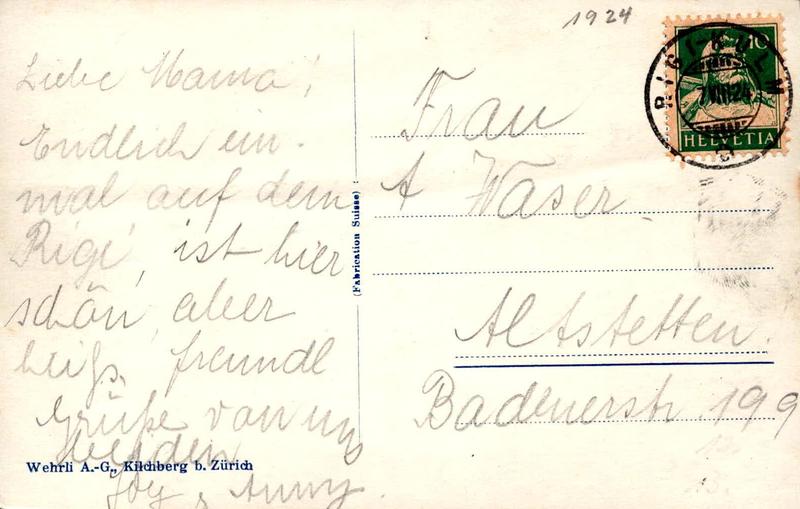 1924
RIGI-KULM
7.VIII.24
10
HELVETIA
Liebe Mama!
Endlich ein-
mal auf dem
Rigi, ist hier
schön, aber
heiß, freundl
Grüße von uns
beiden
& Anny.
(Fabrication Suisse)
Wehrli A.-G., Kilchberg b. Zürich
Frau
A Waser
Altstetten.
Badenerstr. 199